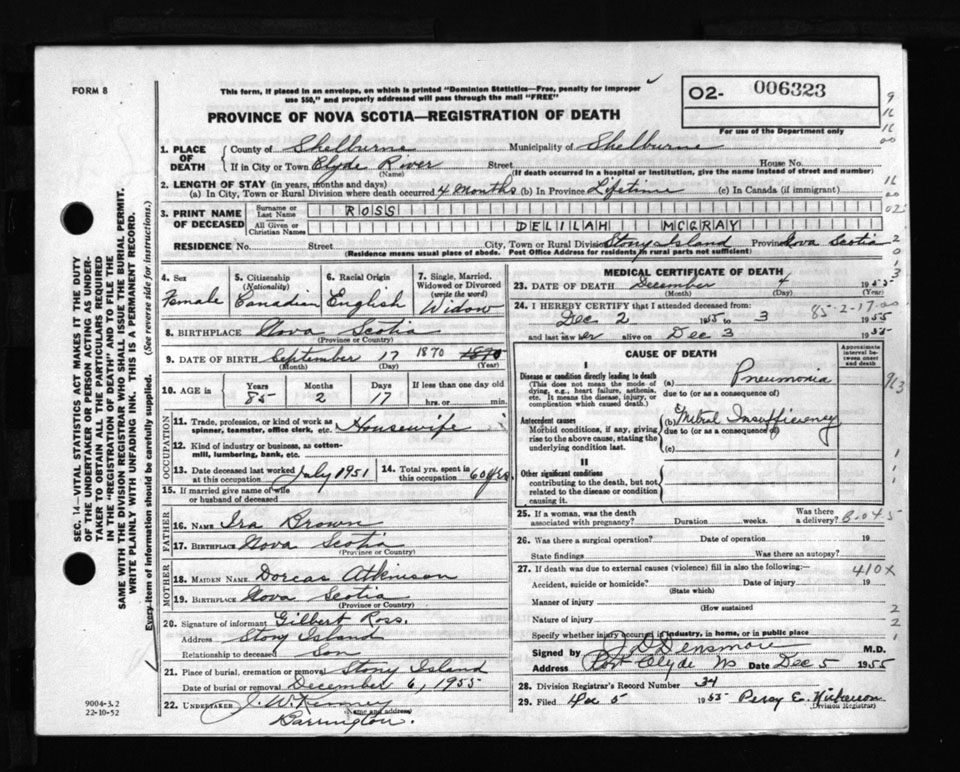 FORM 8
This form, if placed in an envelope, on which is printed "Dominion Statistics—Free, penalty for improper
use $50," and properly addressed will pass through the mail "FREE"
PROVINCE OF NOVA SCOTIA—REGISTRATION OF DEATH
O2- 006323
For use of the Department only
9
16
16
00
1. PLACE OF DEATH
County of Shelburne Municipality of Shelburne
If in City or Town Clyde River Street House No.
(Name) (If death occurred in a hospital or institution, give the name instead of street and number)
2. LENGTH OF STAY (in years, months and days)
(a) In City, Town or Rural Division where death occurred 4 months (b) In Province Lifetime (c) In Canada (if immigrant)
16
00
02
3. PRINT NAME OF DECEASED
Surname or Last Name ROSS
All Given or Christian Names DELILAH MCGRAY
RESIDENCE No. Street City, Town or Rural Division Stony Island Province Nova Scotia
(Residence means usual place of abode. Post Office Address for residents in rural parts not sufficient)
2
0
1
3
SEC. 14—VITAL STATISTICS ACT MAKES IT THE DUTY
OF THE UNDERTAKER OR PERSON ACTING AS UNDER-
TAKER TO OBTAIN ALL THE PARTICULARS REQUIRED
IN THE "REGISTRATION OF DEATH" AND TO FILE THE
SAME WITH THE DIVISION REGISTRAR WHO SHALL ISSUE THE BURIAL PERMIT.
WRITE PLAINLY WITH UNFADING INK. THIS IS A PERMANENT RECORD.
Every item of information should be carefully supplied. (See reverse side for instructions.)
4. Sex
Female
5. Citizenship
(Nationality)
Canadian
6. Racial Origin
English
7. Single, Married,
Widowed or Divorced
(write the word)
Widow
8. BIRTHPLACE Nova Scotia
(Province or Country)
9. DATE OF BIRTH September 17 1870 1890
(Month) (Day) (Year)
10. AGE in
Years Months Days If less than one day old
85 2 17 hrs. or min.
OCCUPATION
11. Trade, profession, or kind of work as
spinner, teamster, office clerk, etc. Housewife
12. Kind of industry or business, as cotton-
mill, lumbering, bank, etc.
13. Date deceased last worked
at this occupation July 1951
14. Total yrs. spent in
this occupation 60 yrs
15. If married give name of wife
or husband of deceased
FATHER
16. NAME Ira Brown
17. BIRTHPLACE Nova Scotia
(Province or Country)
MOTHER
18. MAIDEN NAME Dorcas Atkinson
19. BIRTHPLACE Nova Scotia
(Province or Country)
20. Signature of informant Gilbert Ross.
Address Stony Island
Relationship to deceased Son
21. Place of burial, cremation or removal Stony Island
Date of burial or removal December 6, 1955
22. UNDERTAKER J. W. Kenney
(Name and address)
Barrington.
MEDICAL CERTIFICATE OF DEATH
23. DATE OF DEATH December 4 1955
(Month) (Day) (Year)
24. I HEREBY CERTIFY that I attended deceased from: 85-2-17-00
Dec 2 1955 to 3 1955
and last saw er alive on Dec 3 1955
CAUSE OF DEATH
Approximate
interval be-
tween onset
and death
I
Disease or condition directly leading to death
(This does not mean the mode of
dying, e.g., heart failure, asthenia,
etc. It means the disease, injury, or
complication which caused death.)
(a) Pneumonia
due to (or as a consequence of)
963
Antecedent causes
Morbid conditions, if any, giving
rise to the above cause, stating the
underlying condition last.
(b) Mitral Insufficiency
due to (or as a consequence of)
(c)
II
Other significant conditions
contributing to the death, but not
related to the disease or condition
causing it.
1
1
1
25. If a woman, was the death
associated with pregnancy? Duration weeks. Was there
a delivery? B-04-5
26. Was there a surgical operation? Date of operation 19
State findings Was there an autopsy?
27. If death was due to external causes (violence) fill in also the following:— 410X
Accident, suicide or homicide? Date of injury 19
(State which)
Manner of injury
(How sustained)
Nature of injury
Specify whether injury occurred in industry, in home, or in public place
2
2
1
Signed by J D Densmore M.D.
Address Port Clyde NS Date Dec 5 1955
28. Division Registrar's Record Number 34
29. Filed Dec 5 1955 Percy E. Nickerson
(Division Registrar)
9004-3.2
22-10-52